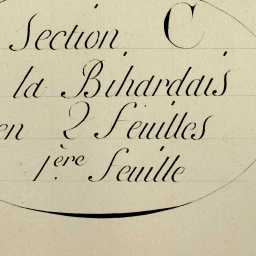 Section C
la Bihardais
en 2 Feuilles
1ère Feuille